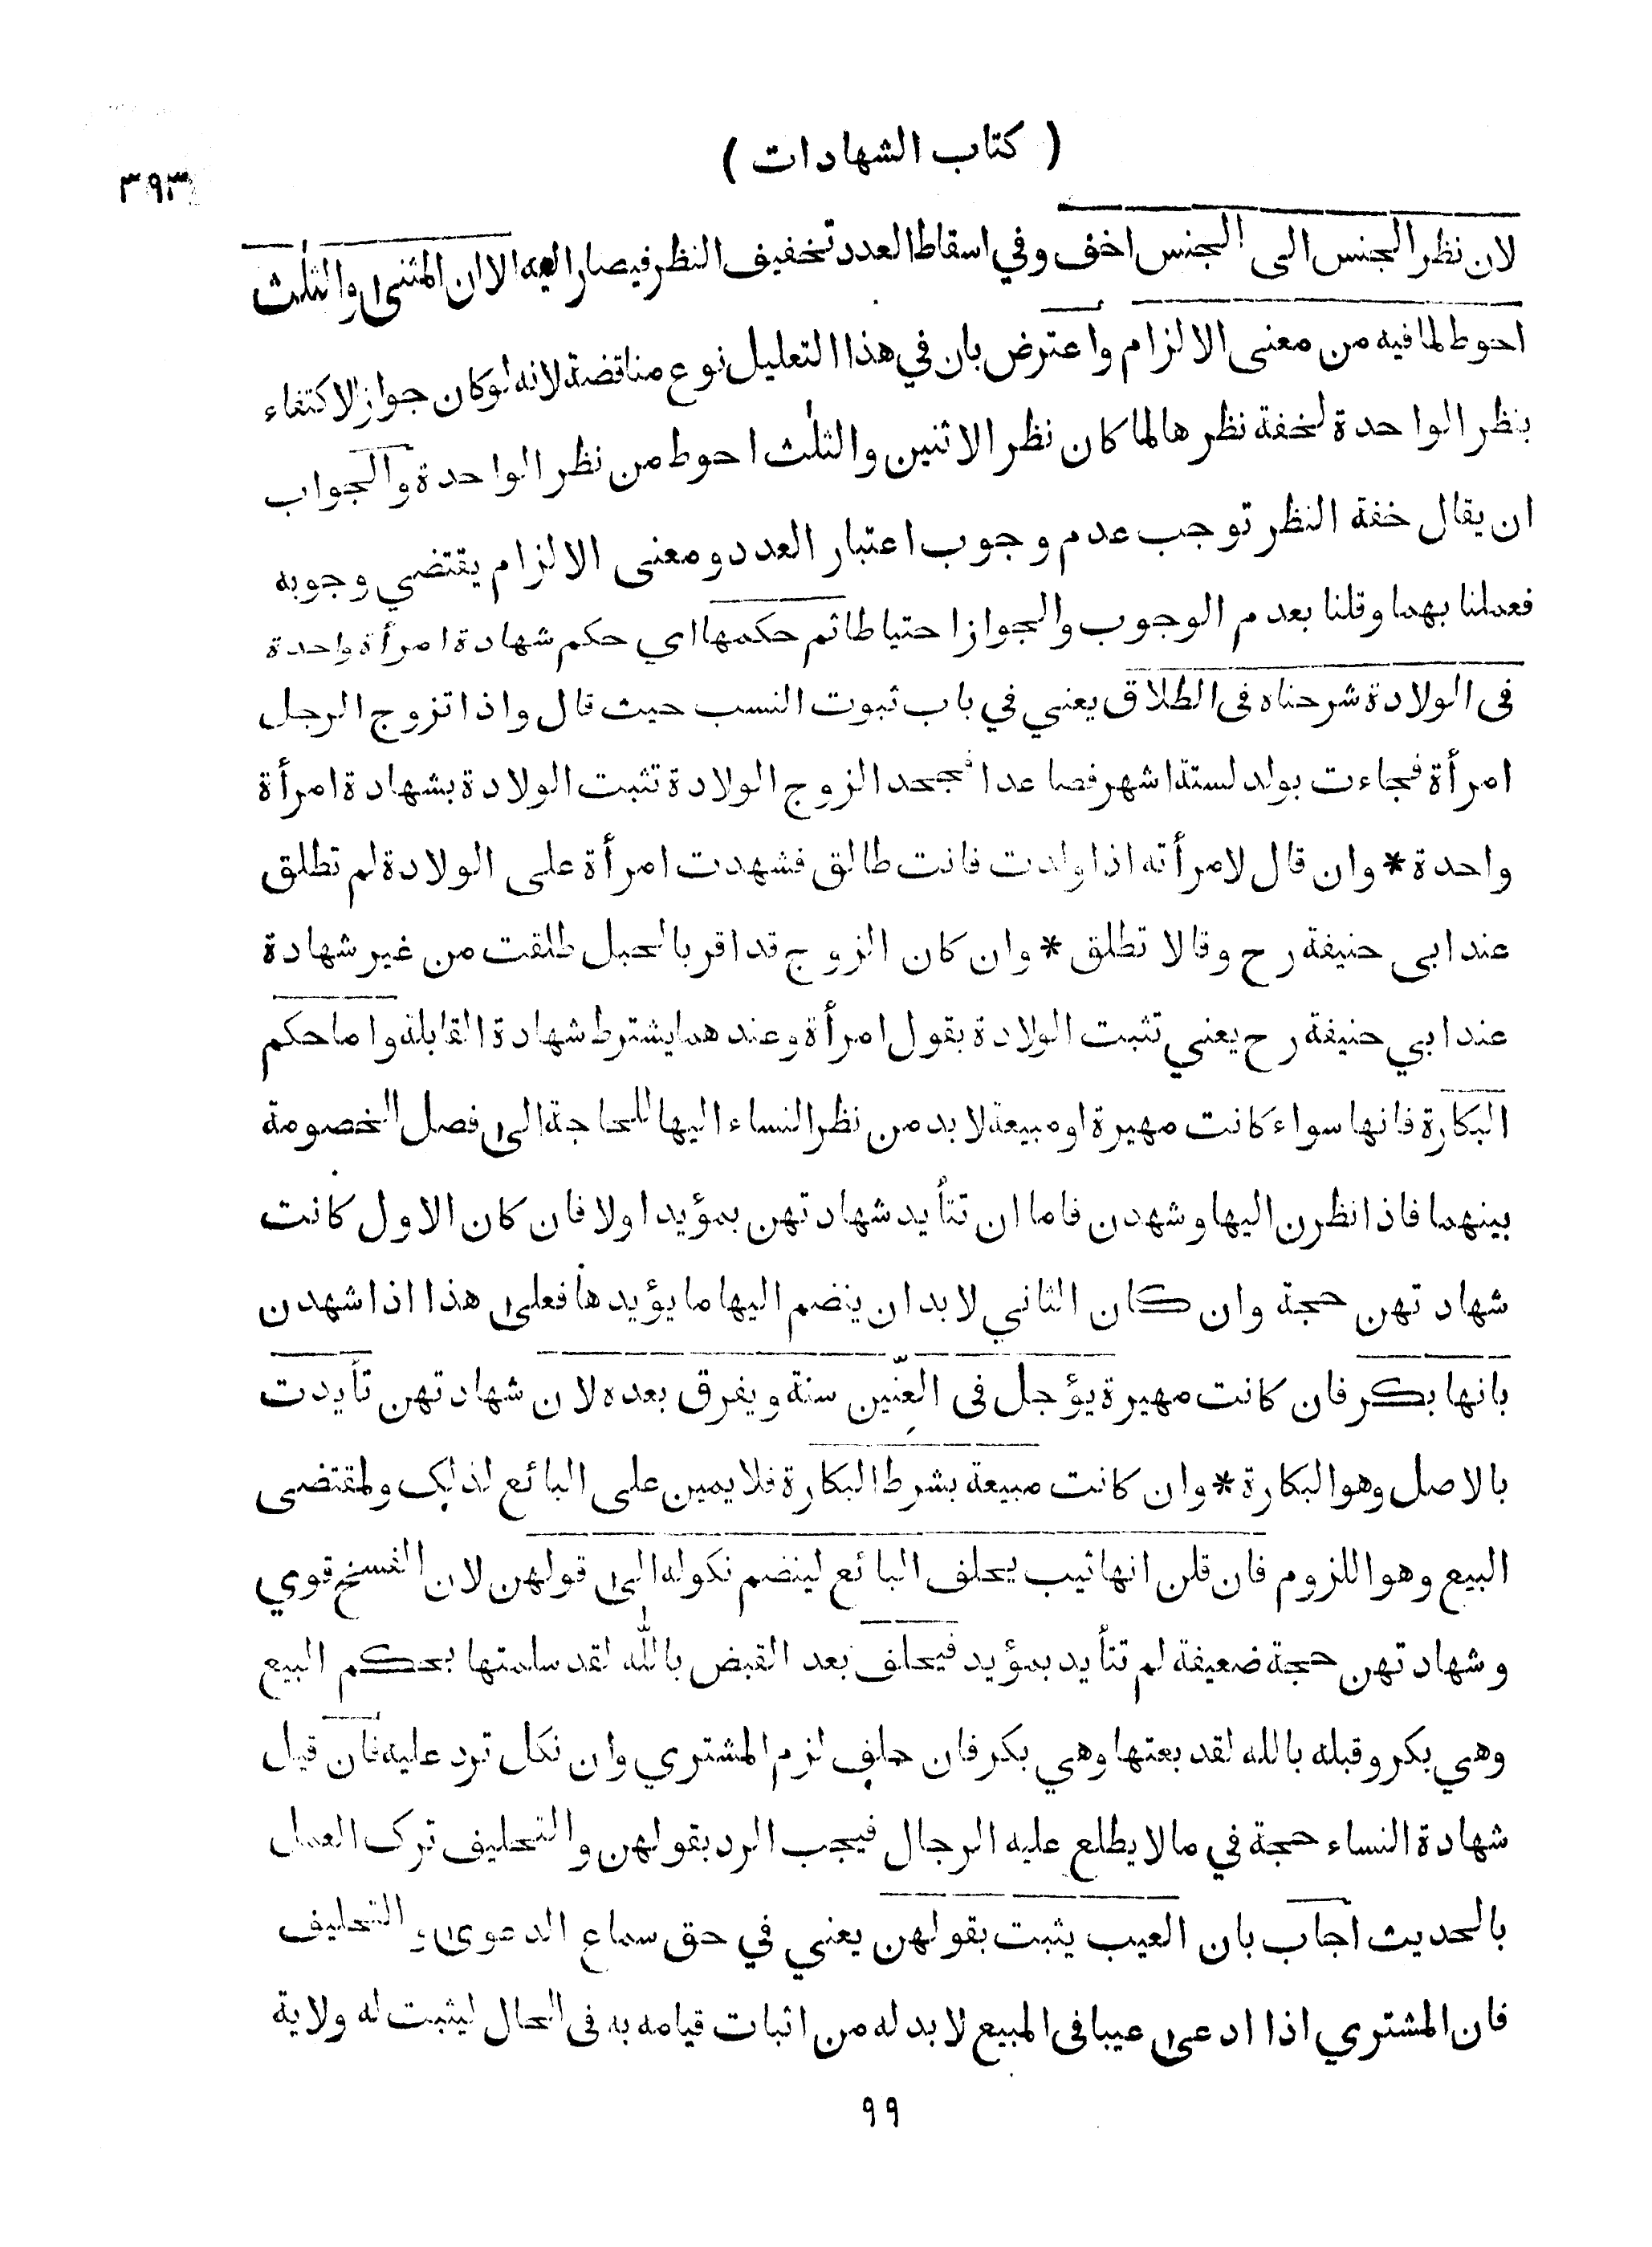 ( كتاب الشهادات )
٣٩٣
لان نظر الجنس الى الجنس اخف وفي اسقاط العدد تخفيف النظر فيصار اليه الا ان المثنى والثلث
احوط لما فيه من معنى الالزام واعترض بان في هذا التعليل نوع مناقضة لانه لو كان جواز الاكتفاء
بنظر الواحدة لخفة نظرها لما كان نظر الاثنين والثلث احوط من نظر الواحدة والجواب
ان يقال خفة النظر توجب عدم وجوب اعتبار العدد ومعنى الالزام يقتضي وجوبه
فعملنا بهما وقلنا بعدم الوجوب والجواز احتياطا ثم حكمها اي حكم شهادة امرأة واحدة
فى الولادة شرحناه فى الطلاق يعني في باب ثبوت النسب حيث قال واذا تزوج الرجل
امرأة فجاءت بولد لستة اشهر فصاعدا فجحد الزوج الولادة تثبت الولادة بشهادة امرأة
واحدة * وان قال لامرأته اذا ولدت فانت طالق فشهدت امرأة على الولادة لم تطلق
عند ابى حنيفة رح وقالا تطلق * وان كان الزوج قد اقر بالحبل طلقت من غير شهادة
عند ابي حنيفة رح يعني تثبت الولادة بقول امرأة وعندهما يشترط شهادة القابلة واما حكم
البكارة فانها سواء كانت مهيرة او مبيعة لا بد من نظر النساء اليها للحاجة الى فصل الخصومة
بينهما فاذا نظرن اليها وشهدن فاما ان تتأيد شهادتهن بمؤيد اولا فان كان الاول كانت
شهادتهن حجة وان كان الثاني لا بد ان ينضم اليها ما يؤيدها فعلى هذا اذا شهدن
بانها بكر فان كانت مهيرة يؤجل فى العِنّين سنة ويفرق بعده لان شهادتهن تأيدت
بالاصل وهو البكارة * وان كانت مبيعة بشرط البكارة فلا يمين على البائع لذلك ولمقتضى
البيع وهو اللزوم فان قلن انها ثيب يحلف البائع لينضم نكوله الى قولهن لان الفسخ قوي
وشهادتهن حجة ضعيفة لم تتأيد بمؤيد فيحلف بعد القبض بالله لقد سلمتها بحكم البيع
وهي بكر وقبله بالله لقد بعتها وهي بكر فان حلف لزم المشتري وان نكل ترد عليه فان قيل
شهادة النساء حجة في ما لا يطلع عليه الرجال فيجب الرد بقولهن والتحليف ترك العمل
بالحديث اجاب بان العيب يثبت بقولهن يعني في حق سماع الدعوى والتحليف
فان المشتري اذا ادعى عيبا فى المبيع لا بد له من اثبات قيامه به فى الحال ليثبت له ولاية
٩٩